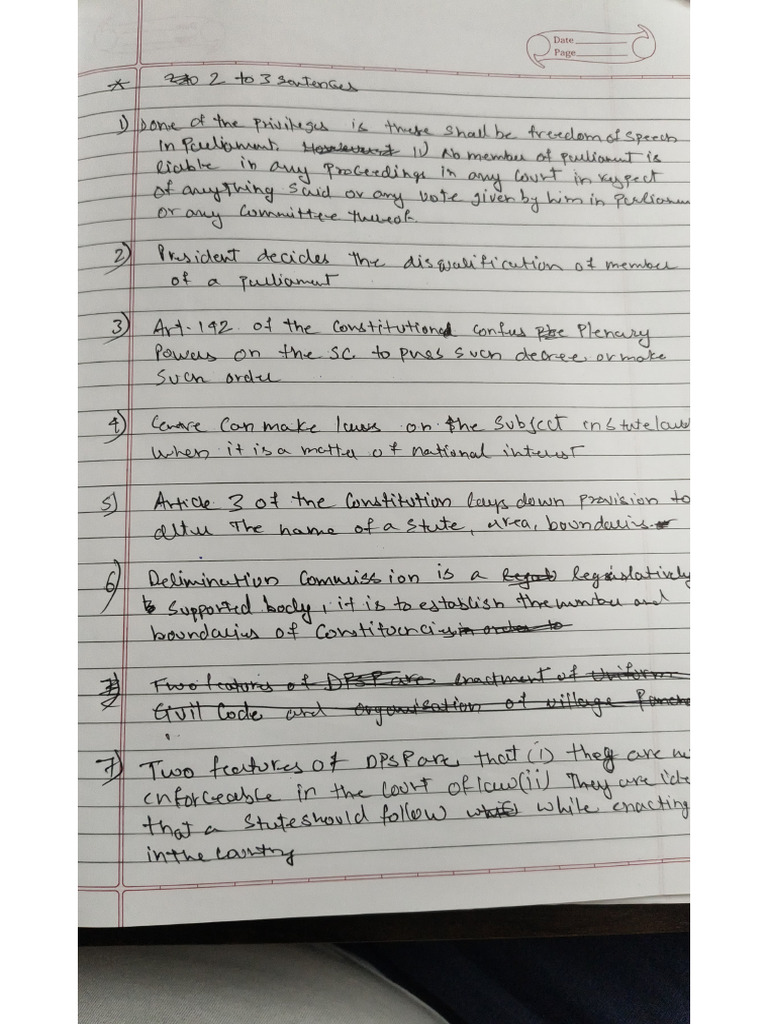 Date
Page
* 2 to 3 Sentences
1) One of the privileges is there shall be freedom of speech
in Parliament. However ii) No member of parliament is
liable in any proceedings in any court in respect
of anything said or any vote given by him in Parliamen
or any committee thereof.
2) President decides the disqualification of member
of a parliament
3) Art. 142 of the Constitution confers Plenary
Powers on the SC to pass such decree or make
such order
4) Centre can make laws on the subject in State
when it is a matter of national interest
5) Article 3 of the Constitution lays down provision to
alter the name of a state, area, boundaries.
6) Delimination Commission is a legislatively
supported body, it is to establish the number and
boundaries of Constituencies in order to
Two features of DPSP are enactment of Uniform
Civil Code and organisation of village Panch
7) Two features of DPSP are that (i) they are n
enforceable in the court of law (ii) They are ide
that a state should follow while enacting
in the country